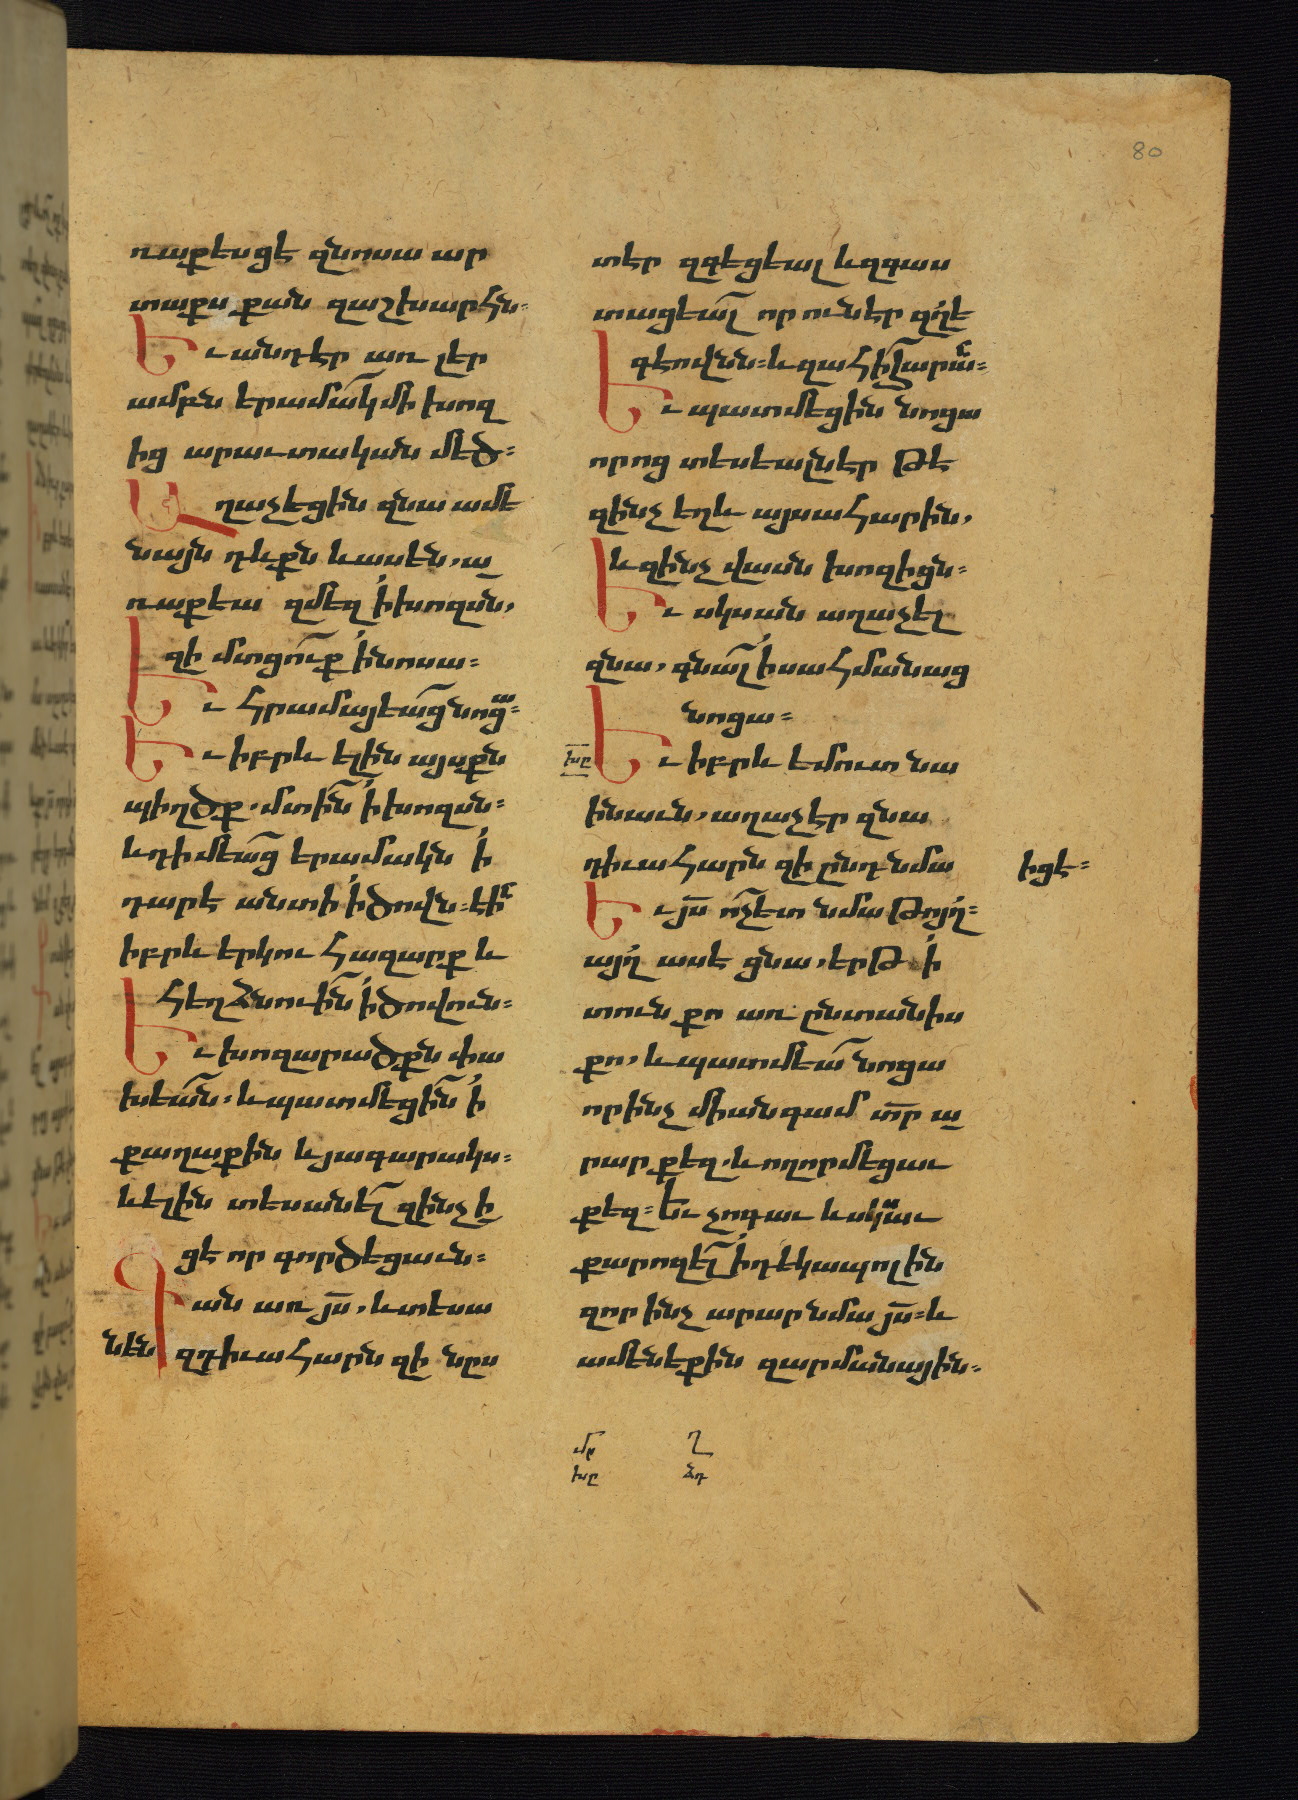 80
ռաքեսցէ զնոսա ար
տաքս քան զաշխարհն։
Եւ անդէր առ լեր
ամբն երամակ մի խոզ
ից արաւտական մեծ։
Աղաչեցին զնա ամե
նայն դևքն և ասեն, ա
ռաքեա զմեզ ի խոզսն,
զի մտցուք ի նոսա։
Եւ հրամայեաց նոցա։
Եւ իբրև ելին այսքն
պիղծք, մտին ի խոզսն։
և դիմեաց երամակն ի
դարէ անտի ի ծովն։ էին
իբրև երկու հազարք և
հեղձնուին ի ծովուն։
Եւ խոզարածքն փա
խեան։ և պատմեցին ի
քաղաքին և յագարակս։
և ելին տեսանել զինչ ի
ցէ որ գործեցաւն։
Գան առ յս, և տեսա
նեն զդիւահարն զի նըս
տէր զգեցեալ և զգաս
տացեալ որ ունէր զղէ
գէովնն։ և զահի հարան։
Եւ պատմեցին նոցա
որոց տեսեալն էր թէ
զինչ եղև այսահարին,
և զինչ վասն խոզիցն։
Եւ սկսան աղաչել
զնա, գնալ ի սահմանաց
նոցա։
խը
Եւ իբրև եմուտ նա
ի նաւն, աղաչէր զնա
դիւահարն զի ընդ նմա իցէ։
Եւ յս ոչ ետ նմա թոյլ։
այղ ասէ ցնա, երթ ի
տուն քո առ ընտանիս
քո, և պատմեա նոցա
որ ինչ միանգամ տր ա
րար քեզ, և ողորմեցաւ
քեզ։ Եւ չոգաւ և սկսաւ
քարոզել ի դեկապոլին
զոր ինչ արար նմա յս։ և
ամենեքին զարմանային։
մը ղ
խը ձդ